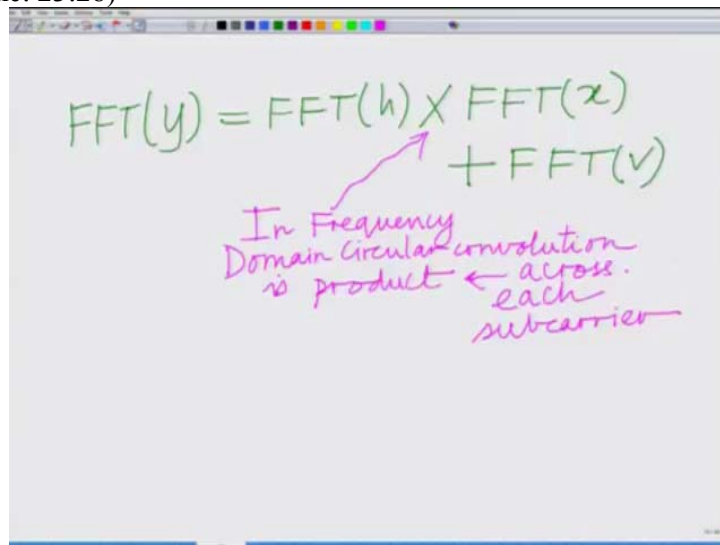 FFT(y) = FFT(h) X FFT(x)
+ FFT(v)
In Frequency
Domain Circular convolution
is product ← across.
each
subcarrier